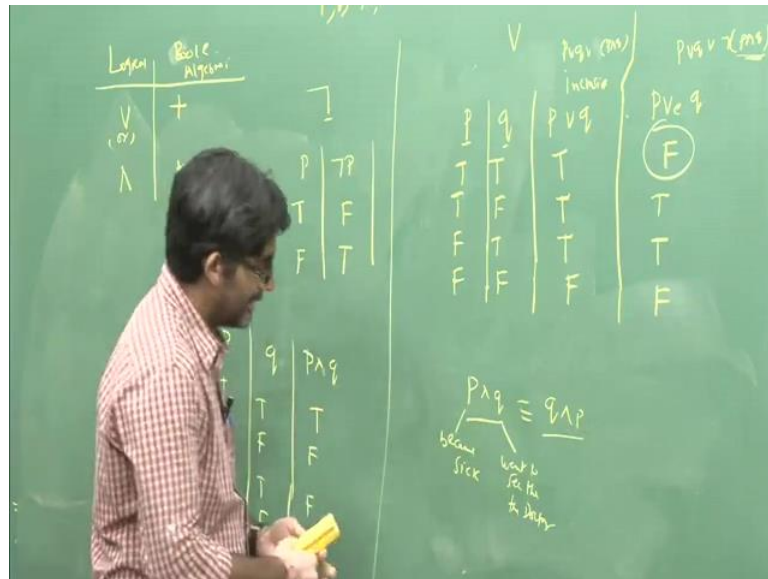 Logic
Boole
Algebra
V +
(or)
Λ
¬
P ¬P
T F
F T
q P∧q
T T
F F
T F
F
V
inclusive
P q P∨q P∨e q
T T T F
T F T T
F T T T
F F F F
P∧q ≡ q∧P
became
sick
went to
see the
the Doctor